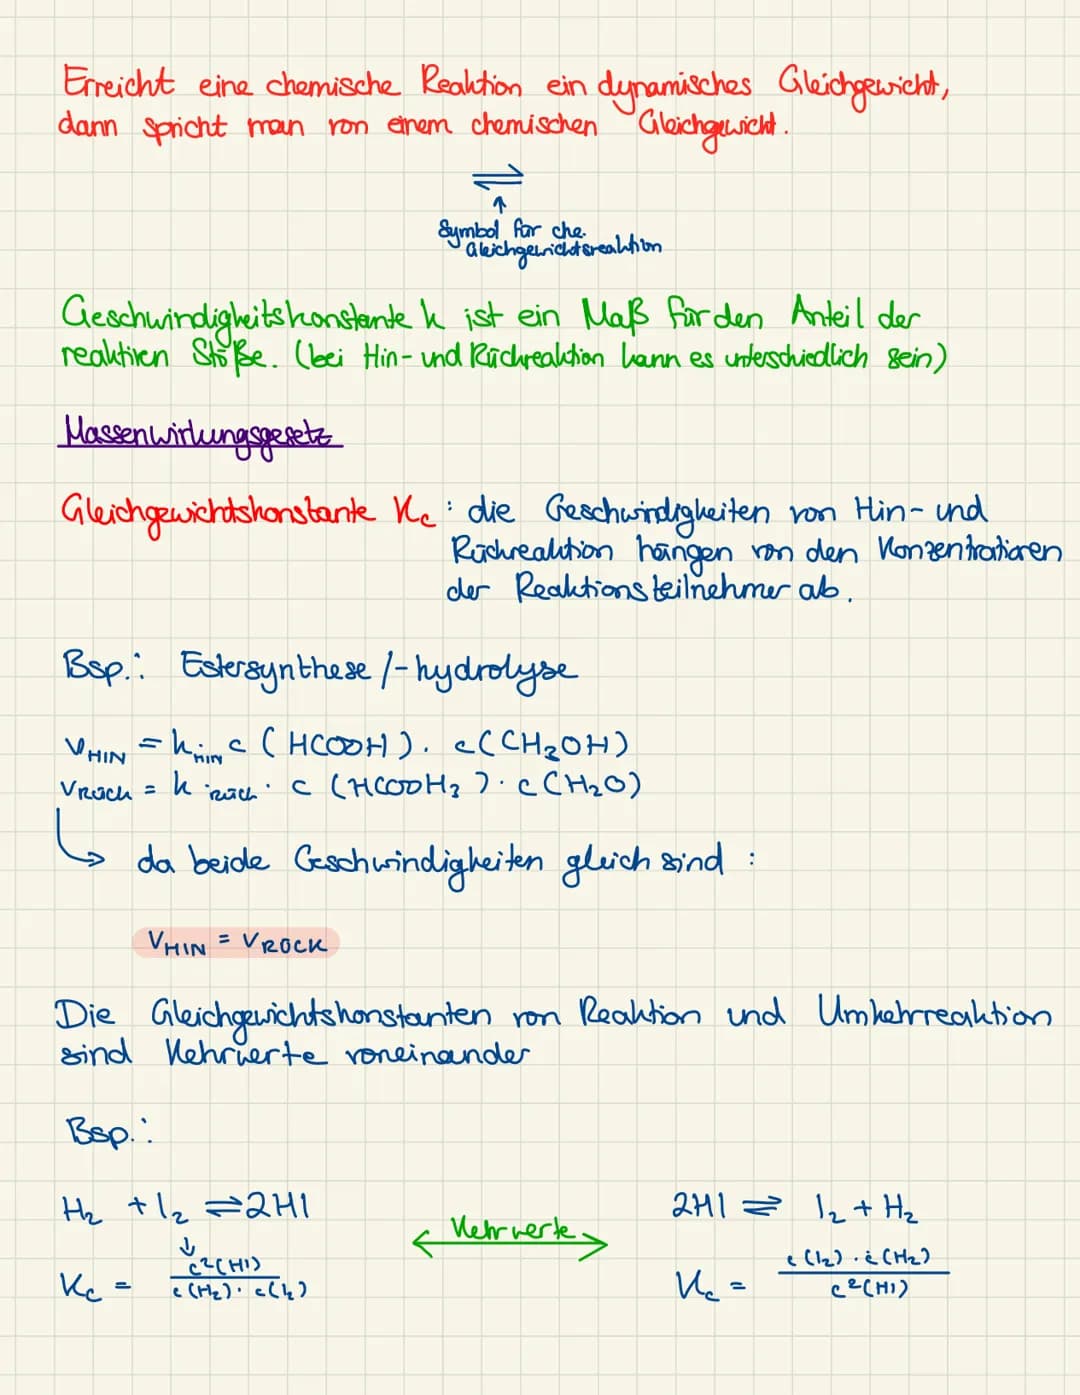 Erreicht eine chemische Reaktion ein dynamisches Gleichgewicht,
dann spricht man von einem chemischen Gleichgewicht.
⇌
↑
Symbol für che.
Gleichgewichtsreaktion
Geschwindigkeitskonstante k ist ein Maß für den Anteil der
reaktiven Stöße. (bei Hin- und Rückreaktion kann es unterschiedlich sein)
Massenwirkungsgesetz
Gleichgewichtskonstante Kc : die Geschwindigkeiten von Hin- und
Rückreaktion hängen von den Konzentrationen
der Reaktionsteilnehmer ab.
Bsp.: Estersynthese /-hydrolyse
VHIN = kHIN c (HCOOH). c(CH₃OH)
VRück = k rück · c (HCOOH₃) · c(H₂O)
↳ da beide Geschwindigkeiten gleich sind :
VHIN = VRÜCK
Die Gleichgewichtskonstanten von Reaktion und Umkehrreaktion
sind Kehrwerte voneinander
Bsp.:
H₂ + I₂ ⇌ 2HI
↓
Kc = c²(HI) / c(H₂) · c(I₂)
Kehrwerte
2HI ⇌ I₂ + H₂
Kc = c(I₂) · c(H₂) / c²(HI)